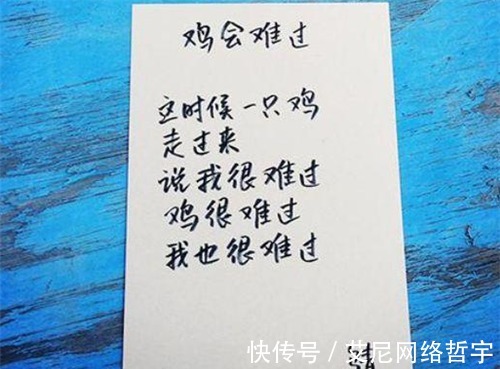 鸡会难过
这时候一只鸡
走过来
说我很难过
鸡很难过
我也很难过
快传号/艾尼网络哲宇